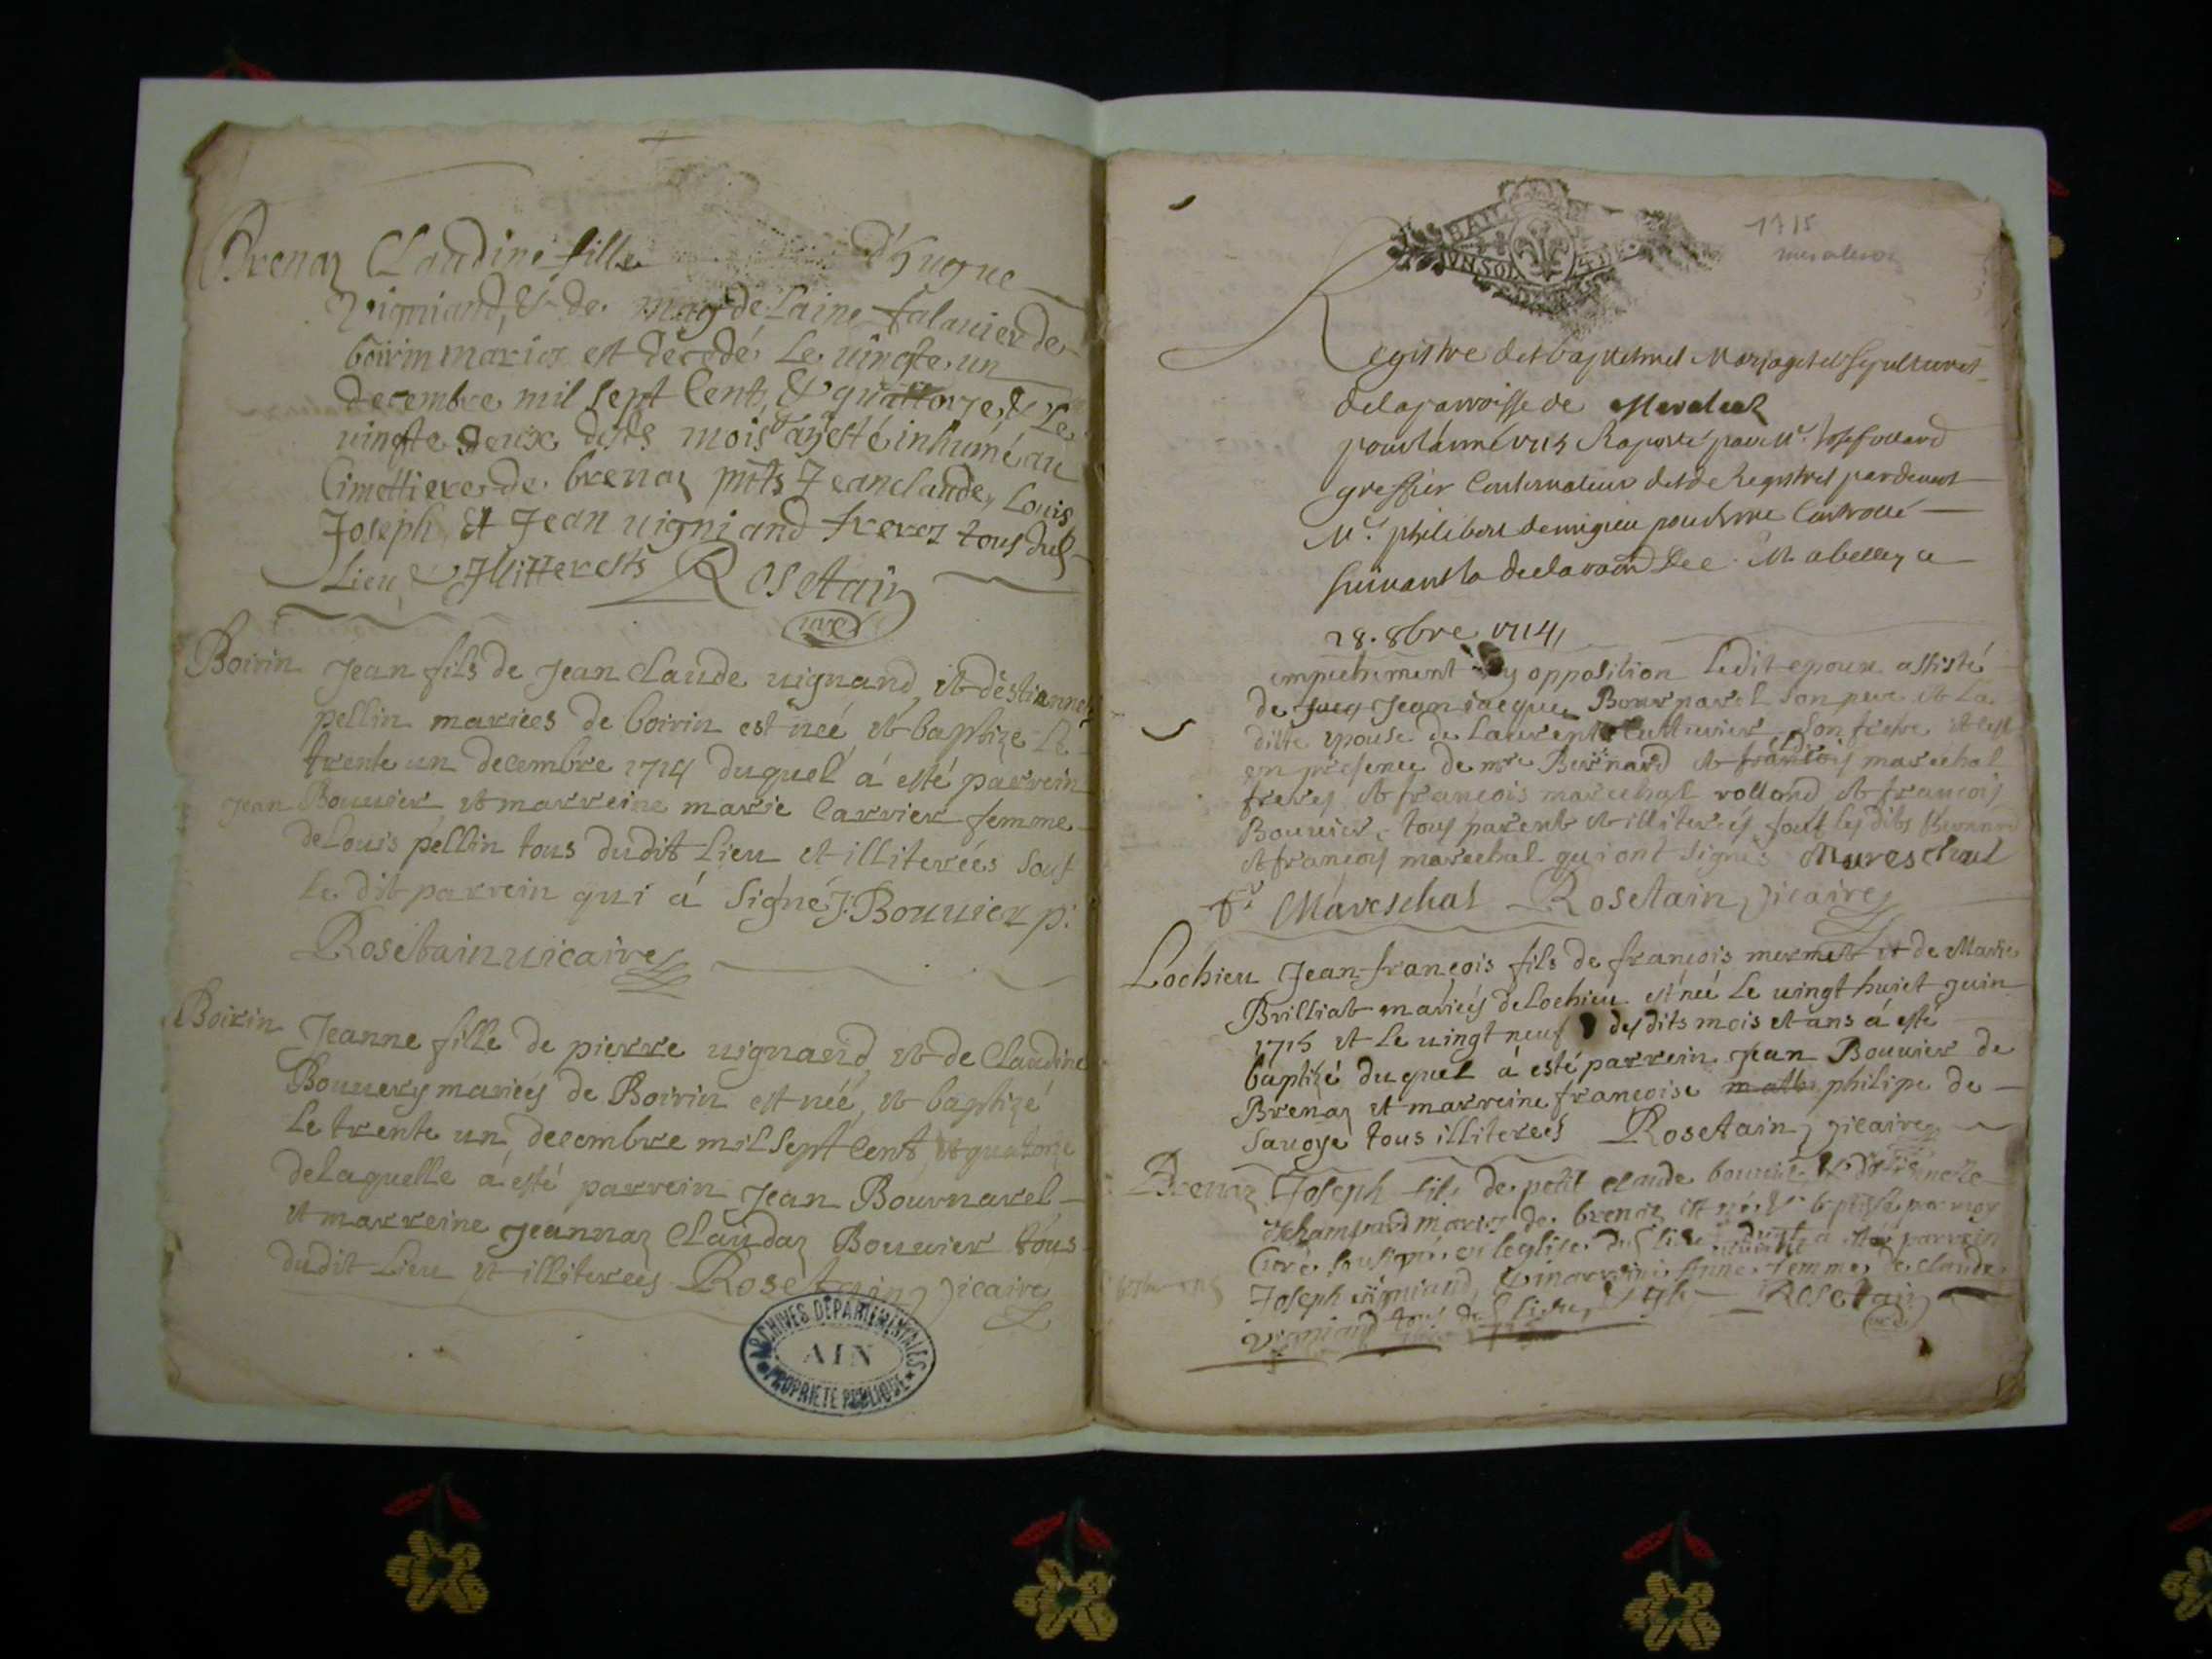 Brenaz Claudine fille d'hugue
Vigniand, & de magdelaine falavier de
boirin mariez est decedé le vingte un
decembre mil sept cent, & quattorze, & le
vingte deux dsds mois & an esté inhumé au
Cimettiere de brenaz pnts Jean claude, Louis
Joseph, et Jean vigniand freres tous duδ
Lieu, & Illitterests Rosetain
curé
Boirin Jean fils de Jean Claude vignand, et d'estiennaz
pellin mariees de boirin est neé, et baptize le
trente un decembre 1714 duquel á esté parrein
Jean Bouvier et marreine marie Carrier femme
de Louis pellin tous dudit Lieu et illiterées sauf
le dit parrein qui á signé J. Bouvier p.
Rosetain vicaire
Boirin Jeanne fille de pierre vignand, et de Claudine
Bouvery mariéés de Boirin est néé, et baptizé
le trente un decembre mil sept cent, et quatorze
delaquelle á esté parrein Jean Bournarel
et marreine Jeannaz Claudaz Bouvier tous
dudit Lieu et illiterees Rosetain vicaire
ARCHIVES DÉPARTEMENTALES
AIN
PROPRIÉTÉ PUBLIQUE
1715
BAIL
UN SOL 4 D
Registre des baptesmes Mariages et sepultures
de la parroisse de
pour l'année 1715 Raporté par Mr.
greffier Conservateur desd Registres pardevant
Mr. philibert demigieu pour
suivant la declaraon a belley ce
28. 8bre 1714
empechement ny opposition ledit epoux assisté
de Jean jacques Bournarel son pere et la
ditte epouse de Laurent son frere et
en presence de mre Bernard et françois marechal
freres et françois marechal rolland et françois
Bouvier, tous parents et illiterés, sauf lesdits Bernard
et françois marechal qui ont signés Mareschal
fr Mareschal Rosetain vicaire
Lochieu Jean-françois fils de françois mermet et de Marie
Brilliat mariéés de Lochieu est né le vingt huict juin
1715 et le vingt neuf desdits mois et ans á esté
baptizé duquel á esté parrein Jean Bouvier de
Brenaz et marreine francoise philipe de
Savoye tous illiterees Rosetain vicaire
Brenaz Joseph fils de petit claude bouvier
mariez de brenaz est né, & baptisé par moy
Curé soussigné en leglise duδ lieu a esté parrein
Joseph vigniand, & marreine Anne femme de claude
vigniand tous duδ lieu, Rosetain
curé